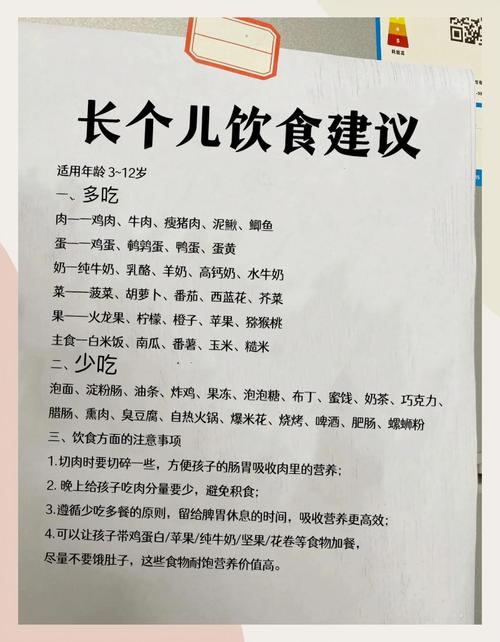 长个儿饮食建议
适用年龄 3~12岁
一、多吃
肉一一鸡肉、牛肉、瘦猪肉、泥鳅、鲫鱼
蛋一一鸡蛋、鹌鹑蛋、鸭蛋、蛋黄
奶一一纯牛奶、乳酪、羊奶、高钙奶、水牛奶
菜一一菠菜、胡萝卜、番茄、西蓝花、芥菜
果一一火龙果、柠檬、橙子、苹果、猕猴桃
主食一一白米饭、南瓜、番薯、玉米、糙米
二、少吃
泡面、淀粉肠、油条、炸鸡、果冻、泡泡糖、布丁、蜜饯、奶茶、巧克力、
腊肠、熏肉、臭豆腐、自热火锅、爆米花、烧烤、啤酒、肥肠、螺蛳粉
三、饮食方面的注意事项
1.切肉时要切碎一些，方便孩子的肠胃吸收肉里的营养；
2. 晚上给孩子吃肉分量要少，避免积食；
3.遵循少吃多餐的原则，留给脾胃休息的时间，吸收营养更高效；
4.可以让孩子带鸡蛋白/苹果/纯牛奶/坚果/花卷等食物加餐，
尽量不要饿肚子，这些食物耐饱营养价值高。
4
5
耗能高